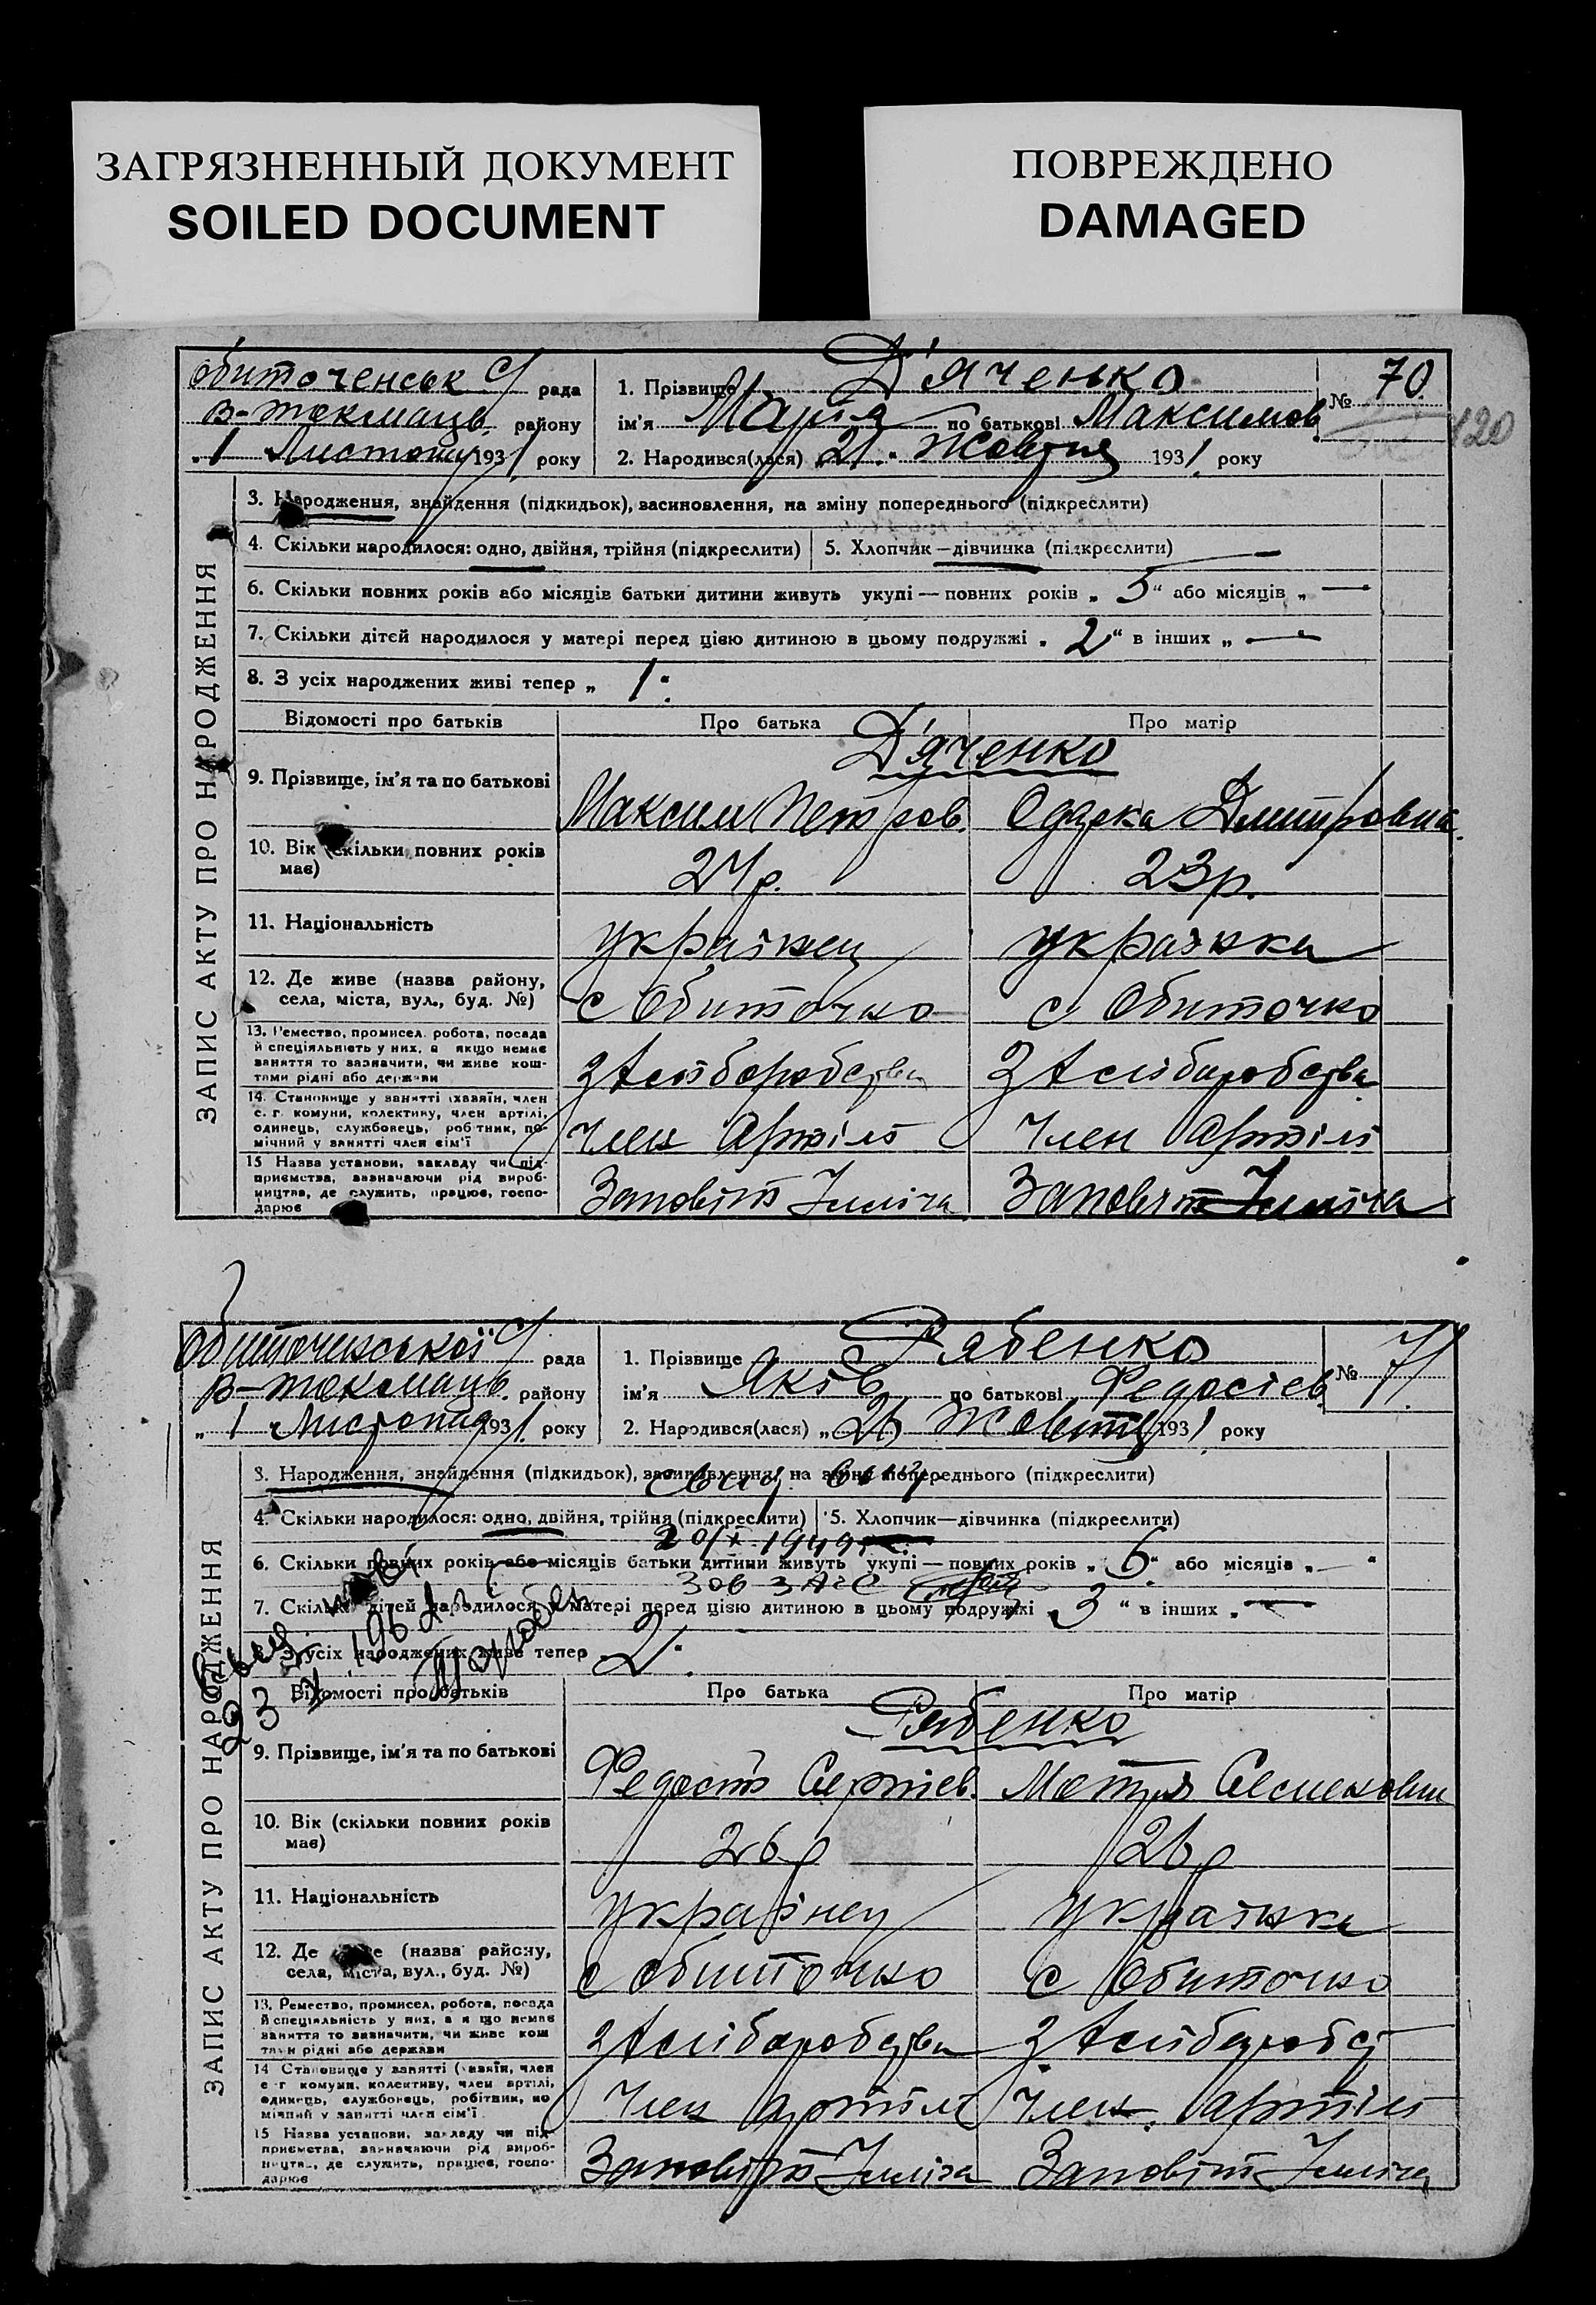 ЗАГРЯЗНЕННЫЙ ДОКУМЕНТ
SOILED DOCUMENT
ПОВРЕЖДЕНО
DAMAGED
Обиточенськ С/ рада
В-Токмацьк. району
"1" Листопад 1931 року
1. Прізвище Д'яченко
ім'я Марія по батькові Максимов
2. Народився(лася) "21" Жовтня 1931 року
№ 70
120
ЗАПИС АКТУ ПРО НАРОДЖЕННЯ
3. Народження, знайдення (підкидьок), засиновлення, на зміну попереднього (підкреслити)
4. Скільки народилося: одно, двійня, трійня (підкреслити) 5. Хлопчик—дівчинка (підкреслити)
6. Скільки повних років або місяців батьки дитини живуть укупі — повних років „ 5 “ або місяців „ —
7. Скільки дітей народилося у матері перед цією дитиною в цьому подружжі „ 2 “ в інших „ — “
8. З усіх народжених живі тепер „ 1 “
Відомості про батьків Про батька Про матір
Д'яченко
9. Прізвище, ім'я та по батькові Максим Петров. Одарка Дмитровна
10. Вік (скільки повних років має) 24р. 23р.
11. Національність українец українка
12. Де живе (назва району, села, міста, вул., буд. №) с Обиточно с Обиточно
13. Ремество, промисел, робота, посада
й спеціяльність у них, а якщо немає
заняття то зазначити, чи живе кош-
тами рідні або держави
хліборобства хліборобства
14. Становище у занятті (хазяїн, член
с. г. комуни, колективу, член артілі,
одинець, службовець, робітник, по-
мічний у занятті член сім'ї
Член Артілі Член Артілі
15 Назва установи, закладу чи під-
приємства, зазначаючи рід вироб-
ництва, де служить, працює, госпо-
дарює
Заповіт Ілліча Заповіт Ілліча
Обиточенської С/ рада
В-Токмацьк. району
„ 1 Листопад 1931 року
1. Прізвище Рябенко
ім'я Яків по батькові Федосієв
2. Народився(лася) „26 Жовтня 1931 року
№ 71
ЗАПИС АКТУ ПРО НАРОДЖЕННЯ
3. Народження, знайдення (підкидьок), засиновлення, на зміну попереднього (підкреслити)
4. Скільки народилося: одно, двійня, трійня (підкреслити) 5. Хлопчик—дівчинка (підкреслити)
20/X 1949
6. Скільки повних років або місяців батьки дитини живуть укупі — повних років „ 6 “ або місяців „ — “
7. Скільки дітей народилося у матері перед цією дитиною в цьому подружжі „ 3 “ в інших „ —
8. З усіх народжених живе тепер 2
Відомості про батьків Про батька Про матір
Рябенко
9. Прізвище, ім'я та по батькові Федосій Сергієв. Мотря
10. Вік (скільки повних років має) 26р 26р
11. Національність українец українка
12. Де живе (назва району, села, міста, вул., буд. №) с Обиточно с Обиточно
13. Ремество, промисел, робота, посада
й спеціяльність у них, а якщо немає
заняття то зазначити, чи живе кош
тами рідні або держави
хліборобства хліборобст
14 Становище у занятті (хазяїн, член
с г комуни, колективу, член артілі,
одинець, службовець, робітник, по
мічний у занятті член сім'ї
Член артілі Член артілі
15 Назва установи, закладу чи під
приємства, зазначаючи рід вироб-
ництва, де служить, працює, госпо-
дарює
Заповіт Ілліча Заповіт Ілліча